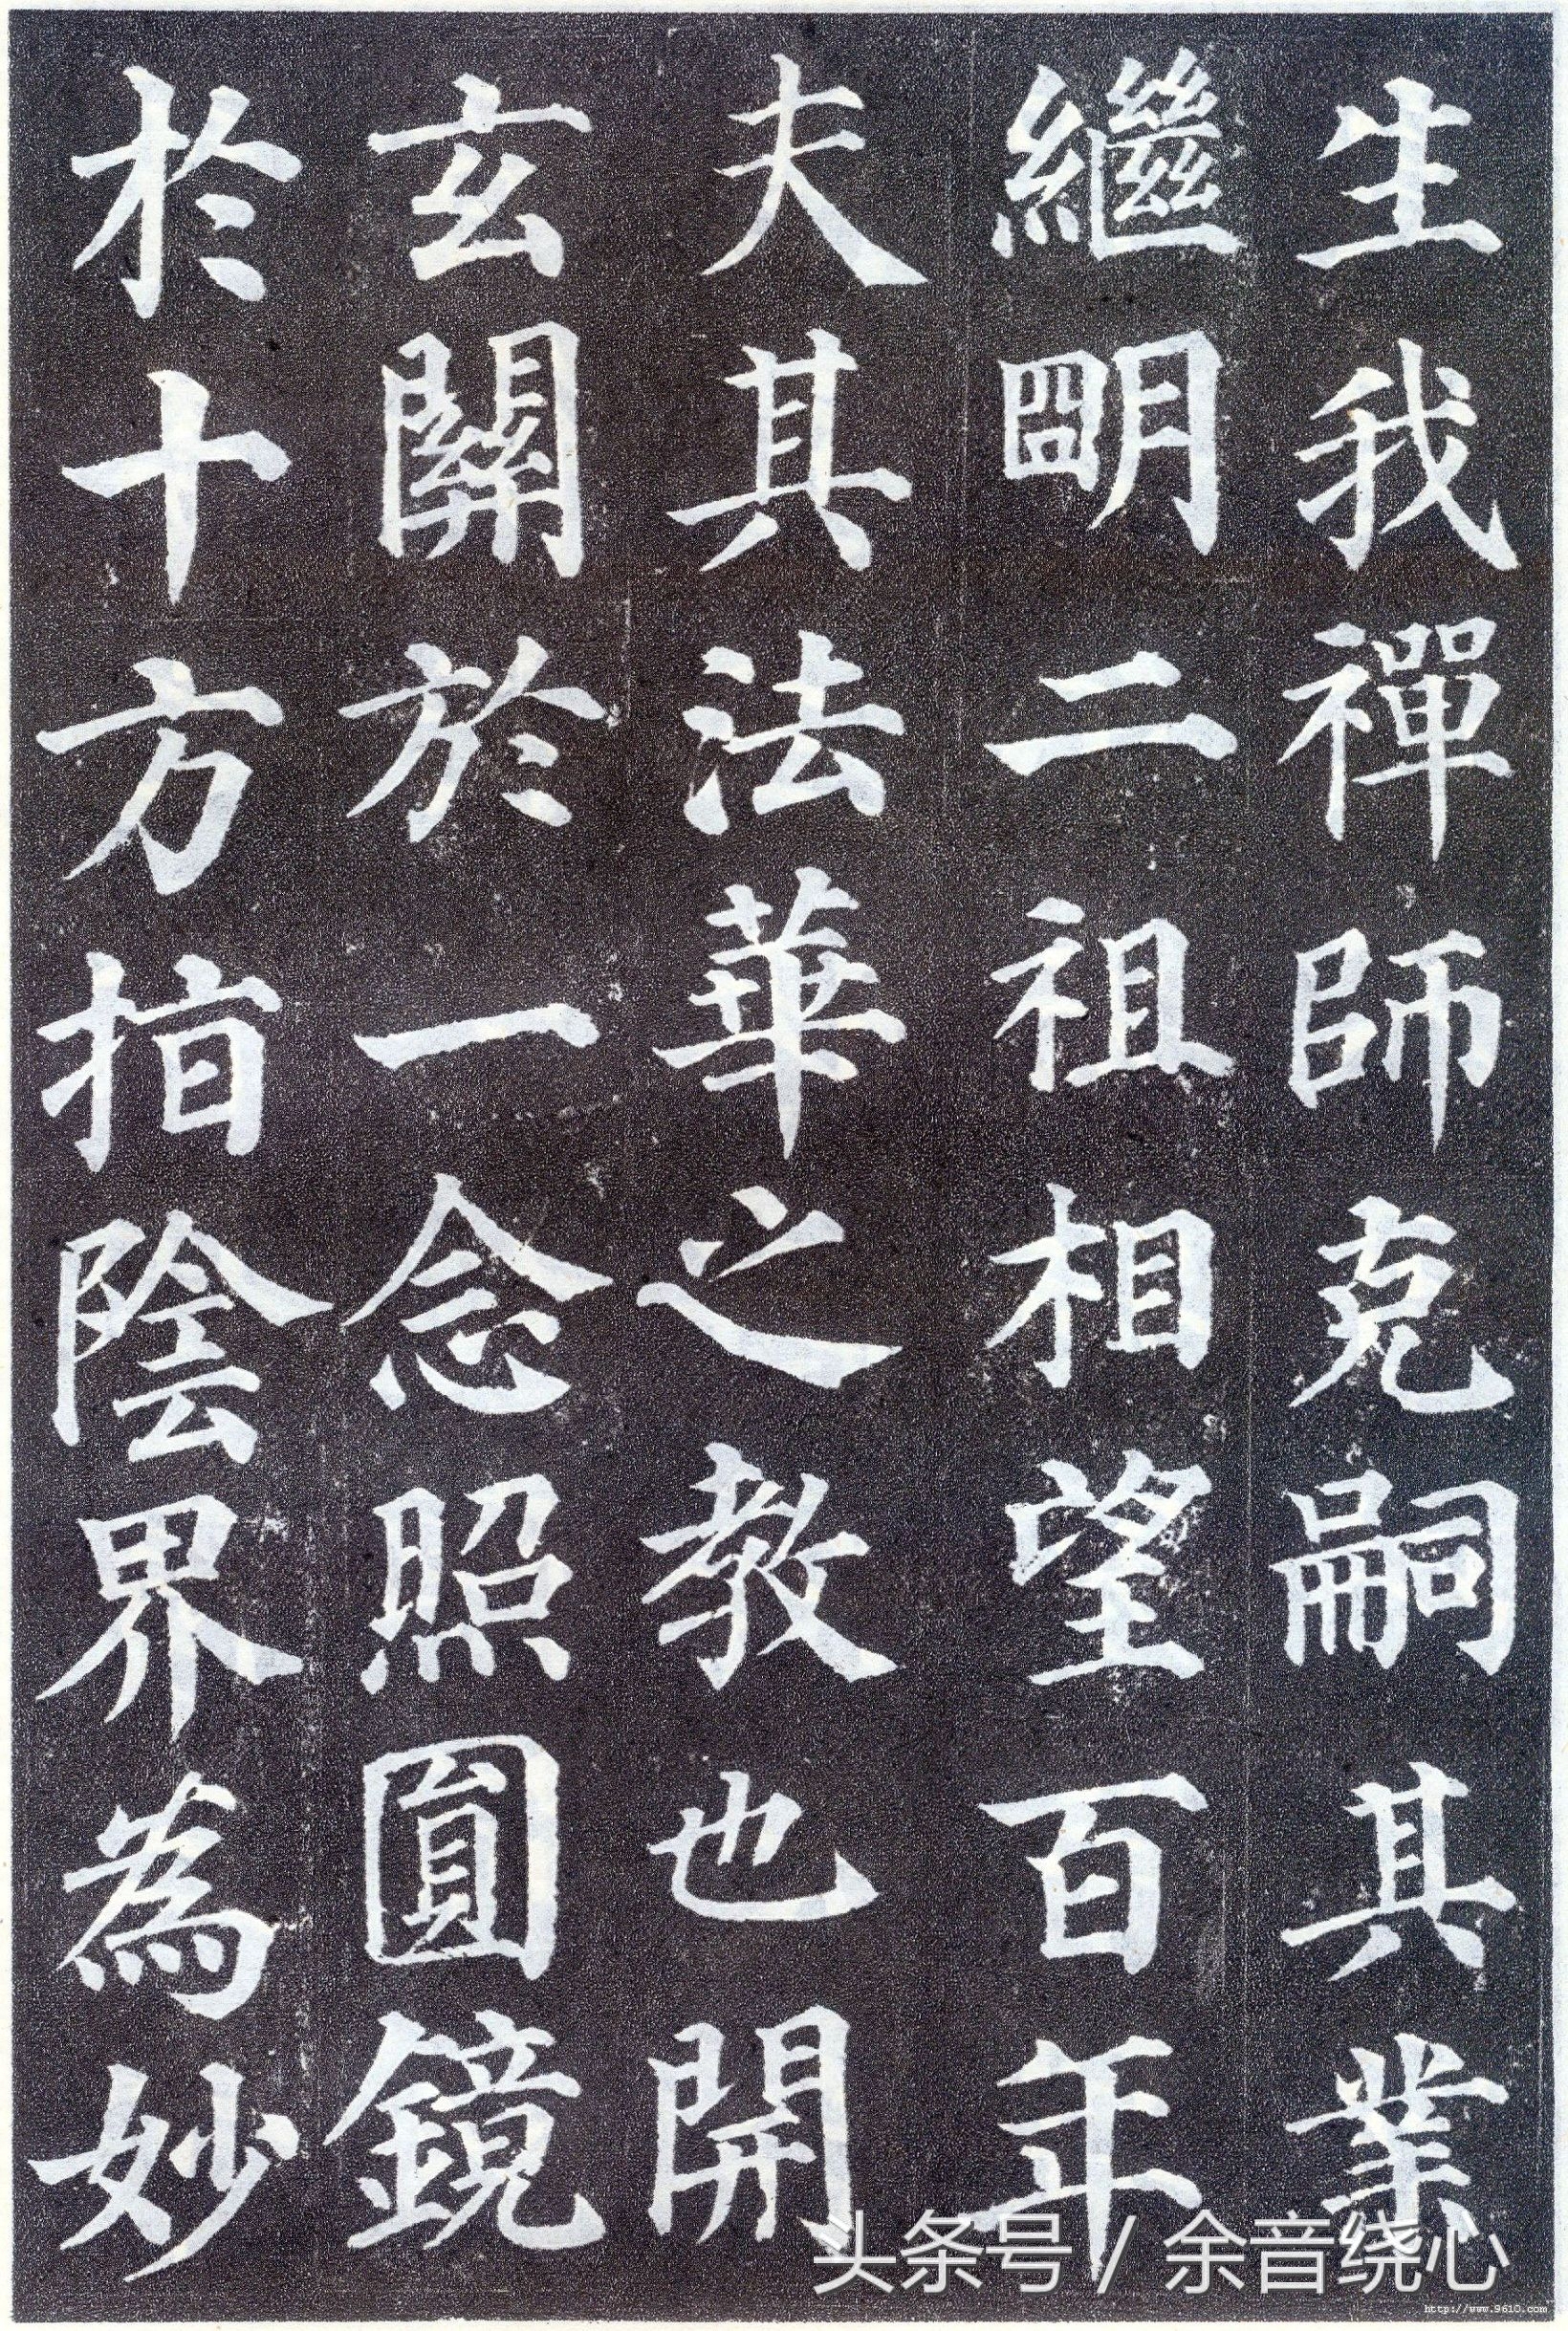 生我禪師克嗣其業
繼明二祖相望百年
夫其法華之教也開
玄關於一念照圓鏡
於十方指陰界為妙
头条号 / 余音绕心
http://www.9610.com